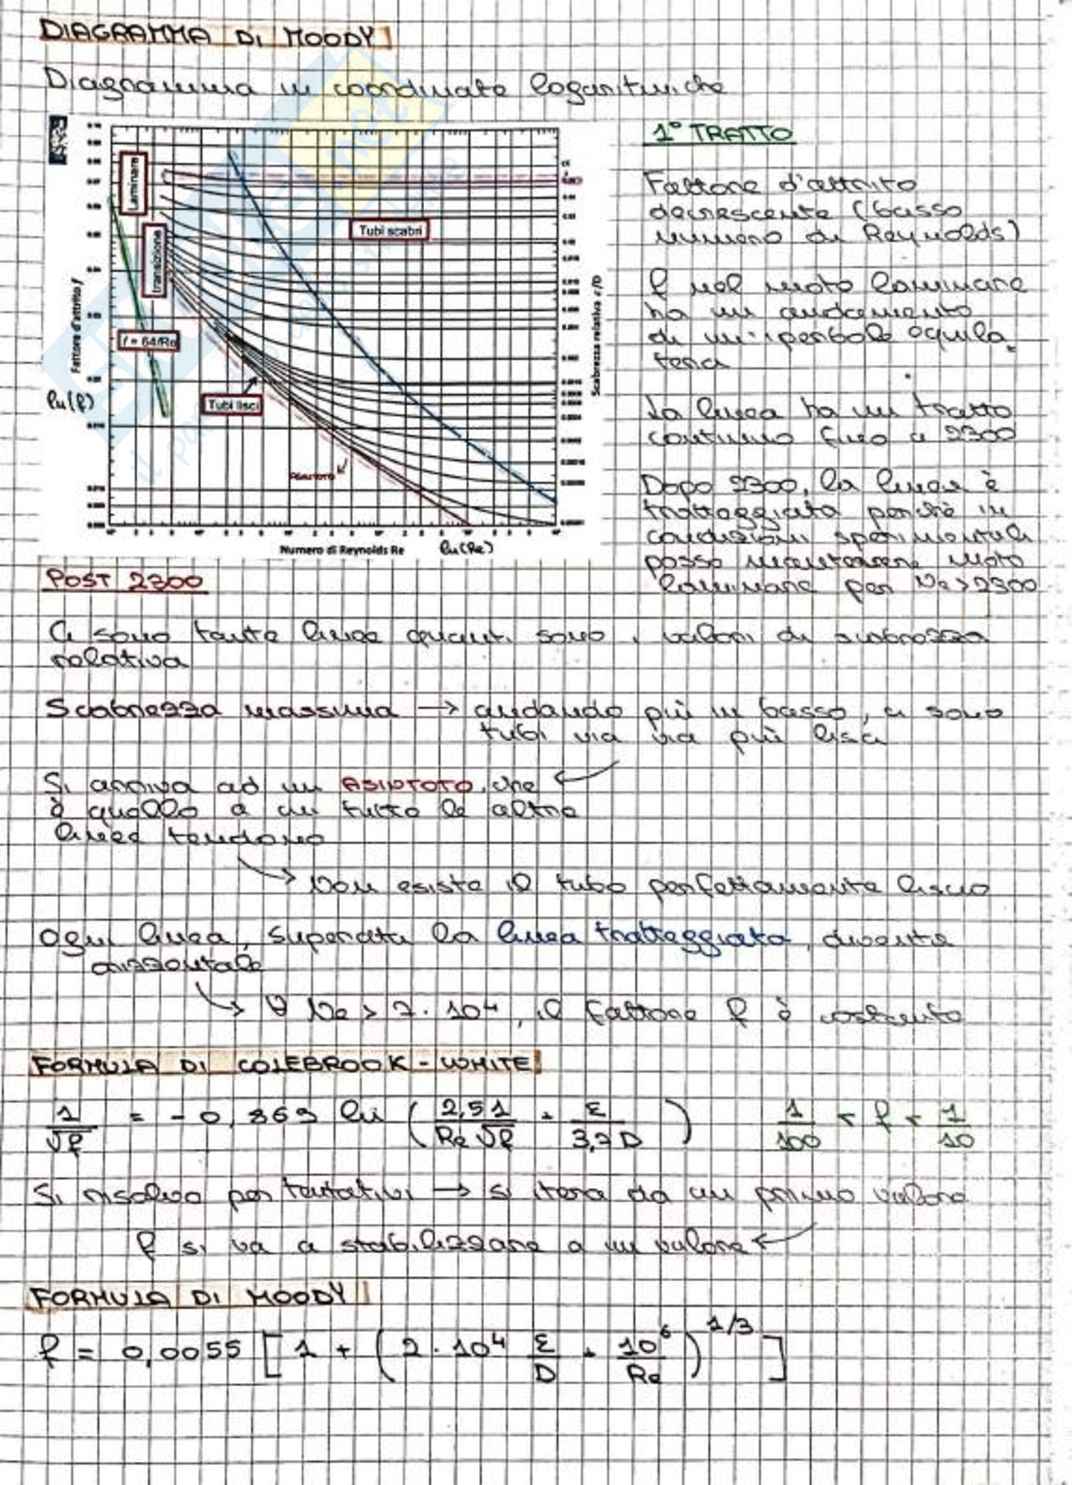 DIAGRAMMA DI MOODY
Diagramma in coordinate logaritmiche
1° TRATTO
Fattore d'attrito
decrescente (basso
numero di Reynolds)
f nel moto laminare
ha un andamento
di un'iperbole equila
tera
La linea ha un tratto
continuo fino a 2300
Dopo 2300, la linea è
tratteggiata perchè in
condizioni sperimentali
posso mantenere moto
laminare per Re>2300
Laminare
transizione
Tubi scabri
f = 64/Re
Tubi lisci
ASINTOTO
Fattore d'attrito f
Scabrezza relativa ε/D
ln(f)
Numero di Reynolds Re
ln(Re)
POST 2300
Ci sono tante linee quanti sono i valori di scabrezza
relativa
Scabrezza massima → andando più in basso, ci sono
tubi via via più lisci
Si arriva ad un ASINTOTO, che
è quello a cui tutte le altre
linee tendono
Non esiste il tubo perfettamente liscio
Ogni linea, superata la linea tratteggiata, diventa
orizzontale
∀ Re > 7·10⁴, il fattore f è costante
FORMULA DI COLEBROOK-WHITE
1/√f = -0,869 ln (2,51/(Re √f) + ε/(3,7 D)) 1/100 < f < 1/10
Si risolve per tentativi → si itera da un primo valore
f si va a stabilizzare a un valore ←
FORMULA DI MOODY
f = 0,0055 [1 + (2·10⁴ ε/D + 10⁶/Re)^1/3]